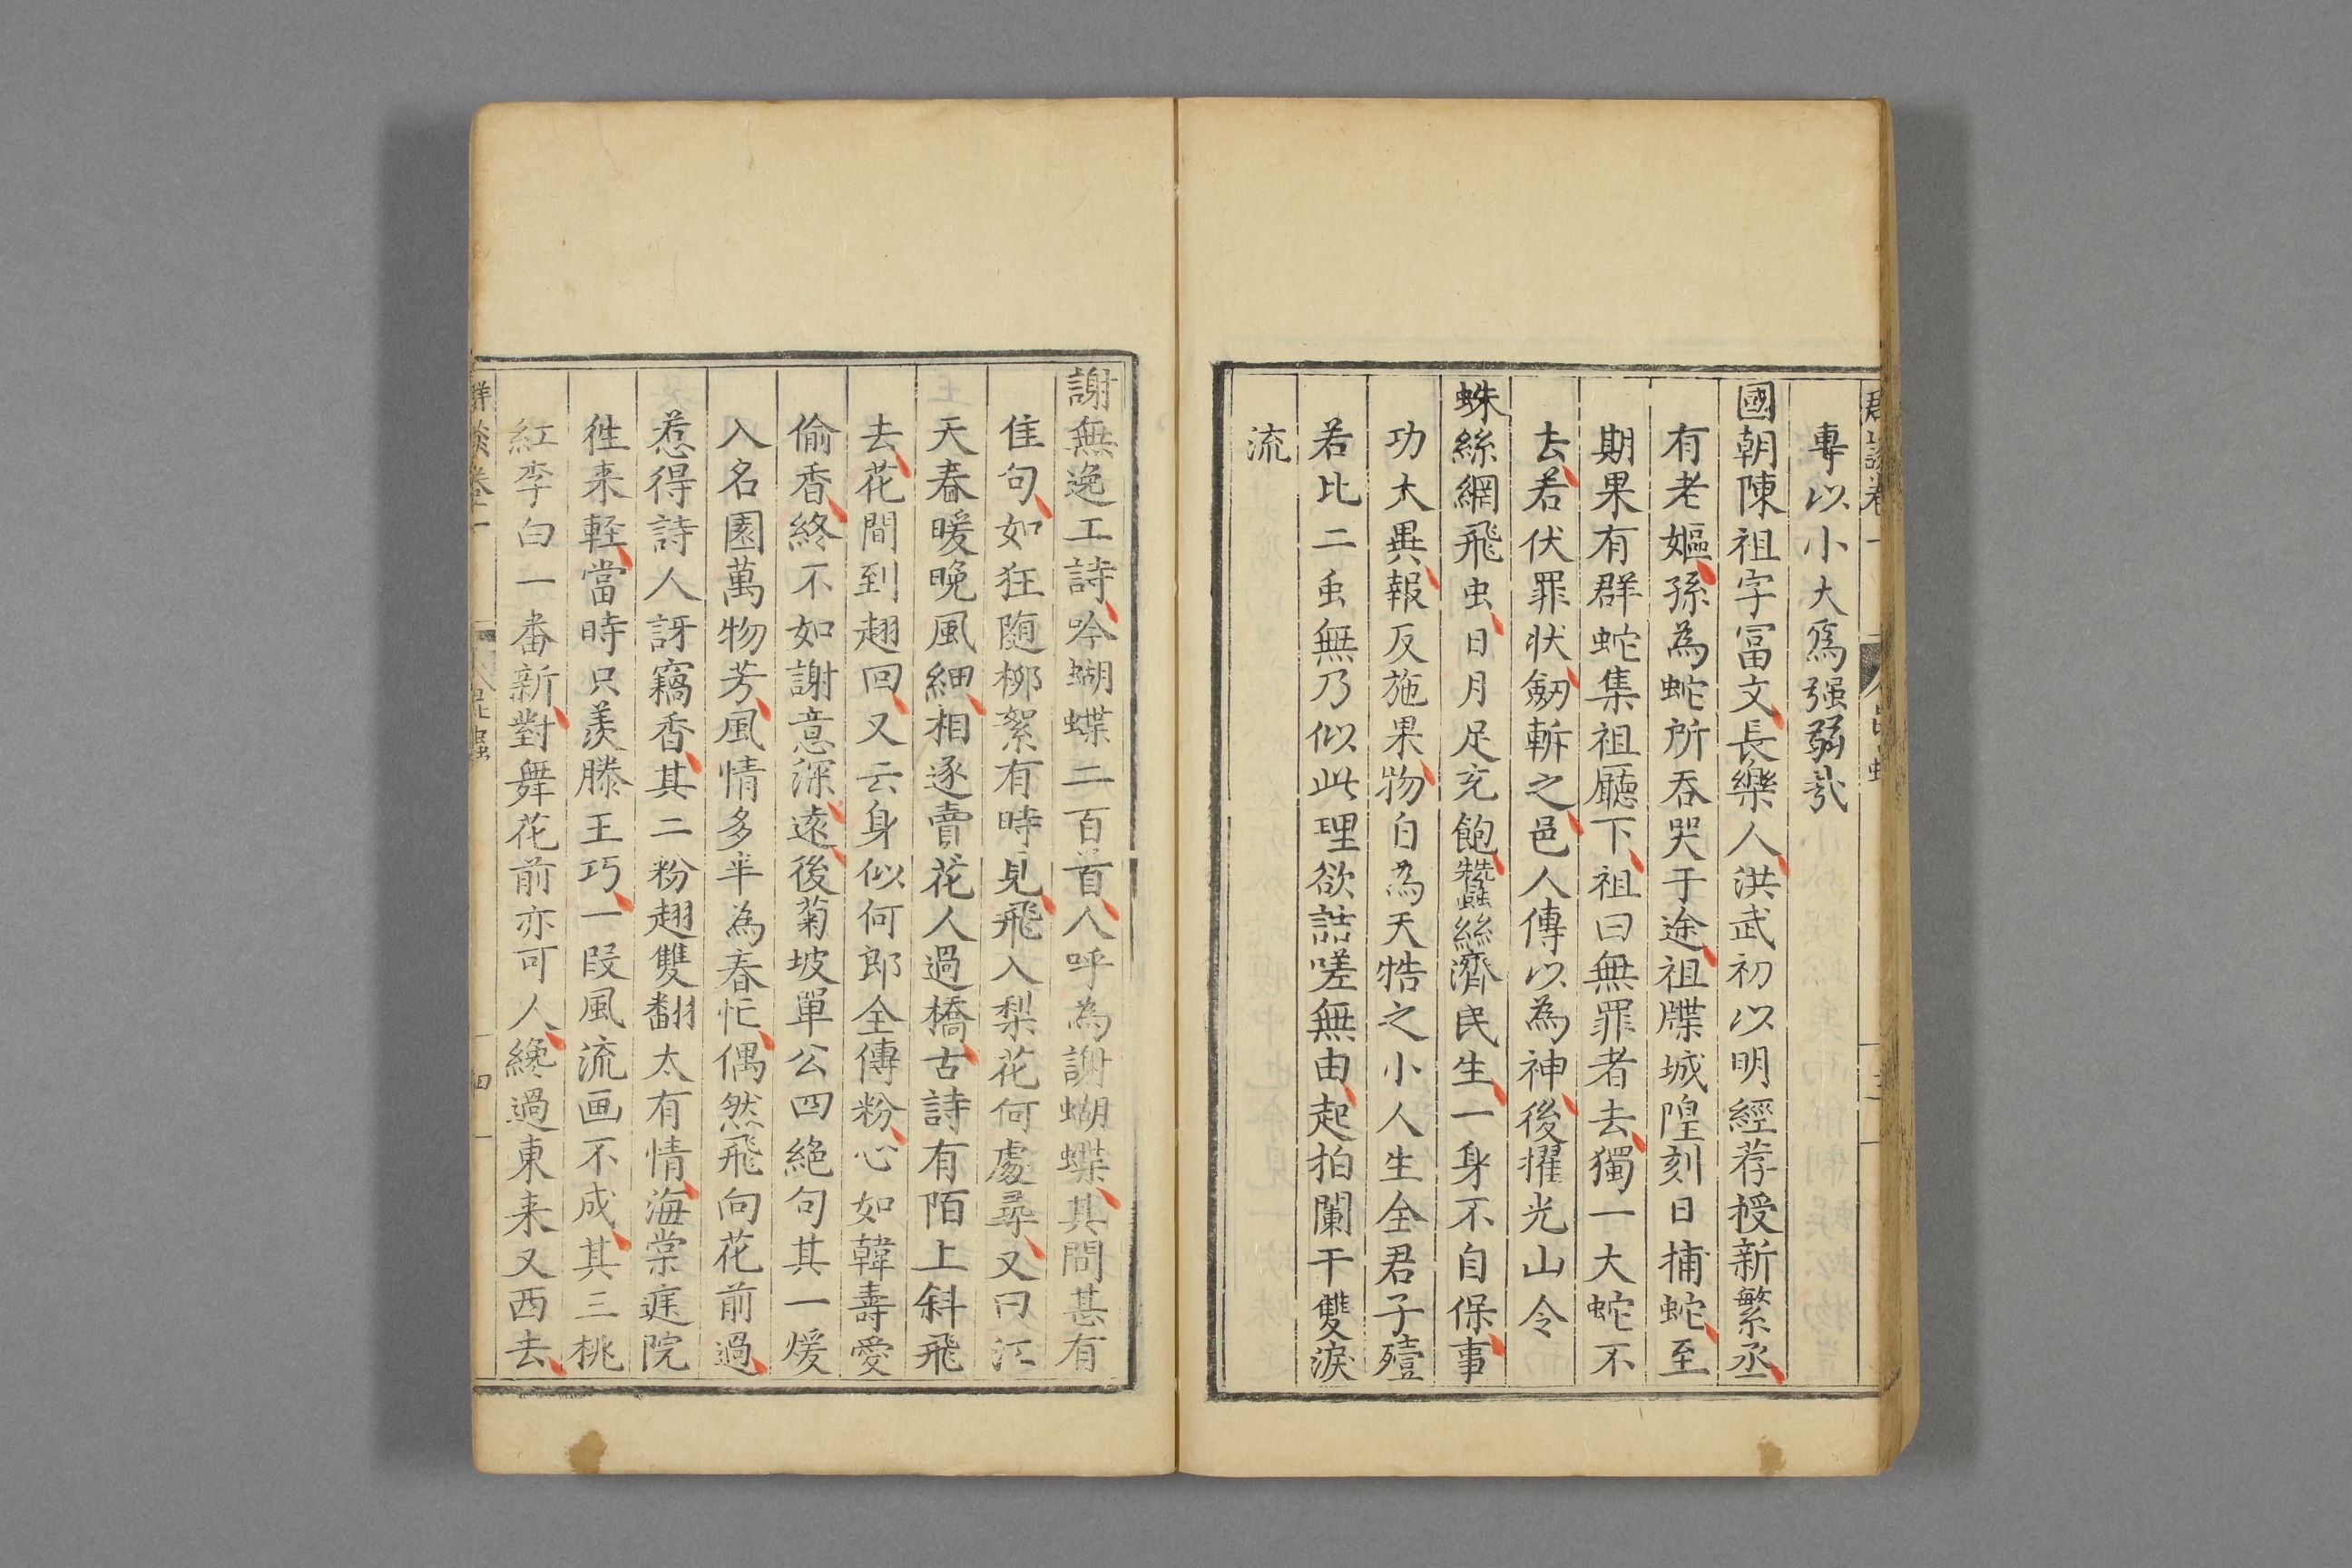 專以小大爲强弱㦲
國朝陳祖字冨文長樂人洪武初以明經荐授新繁丞
有老嫗孫為蛇所吞哭于途祖牒城隍刻日捕蛇至
期果有群蛇集祖廳下祖曰無罪者去獨一大蛇不
去若伏罪状劔斬之邑人傳以為神後擢光山令
蛛絲網飛虫日月足充飽蠶絲濟民生一身不自保事
功大異報反施果物白為天牿之小人生全君子殪
若比二䖝無乃似此理欲詰嗟無由起拍闌干雙淚
流
謝無逸工詩吟蝴蝶二百首人呼為謝蝴蝶其間甚有
佳句如狂随栁絮有時見飛入梨花何處尋又曰江
天春暖晚風細相逐賣花人過橋古詩有陌上斜飛
去花間到翅回又云身似何郎全傳粉心如韓壽愛
偷香終不如謝意深遠後菊坡單公四絕句其一煖
入名園萬物芳風情多半為春忙偶然飛向花前過
惹得詩人訝竊香其二粉翅雙翻太有情海棠庭院
徃来軽當時只羨滕王巧一段風流画不成其三桃
紅李白一番新對舞花前亦可人纔過東来又西去